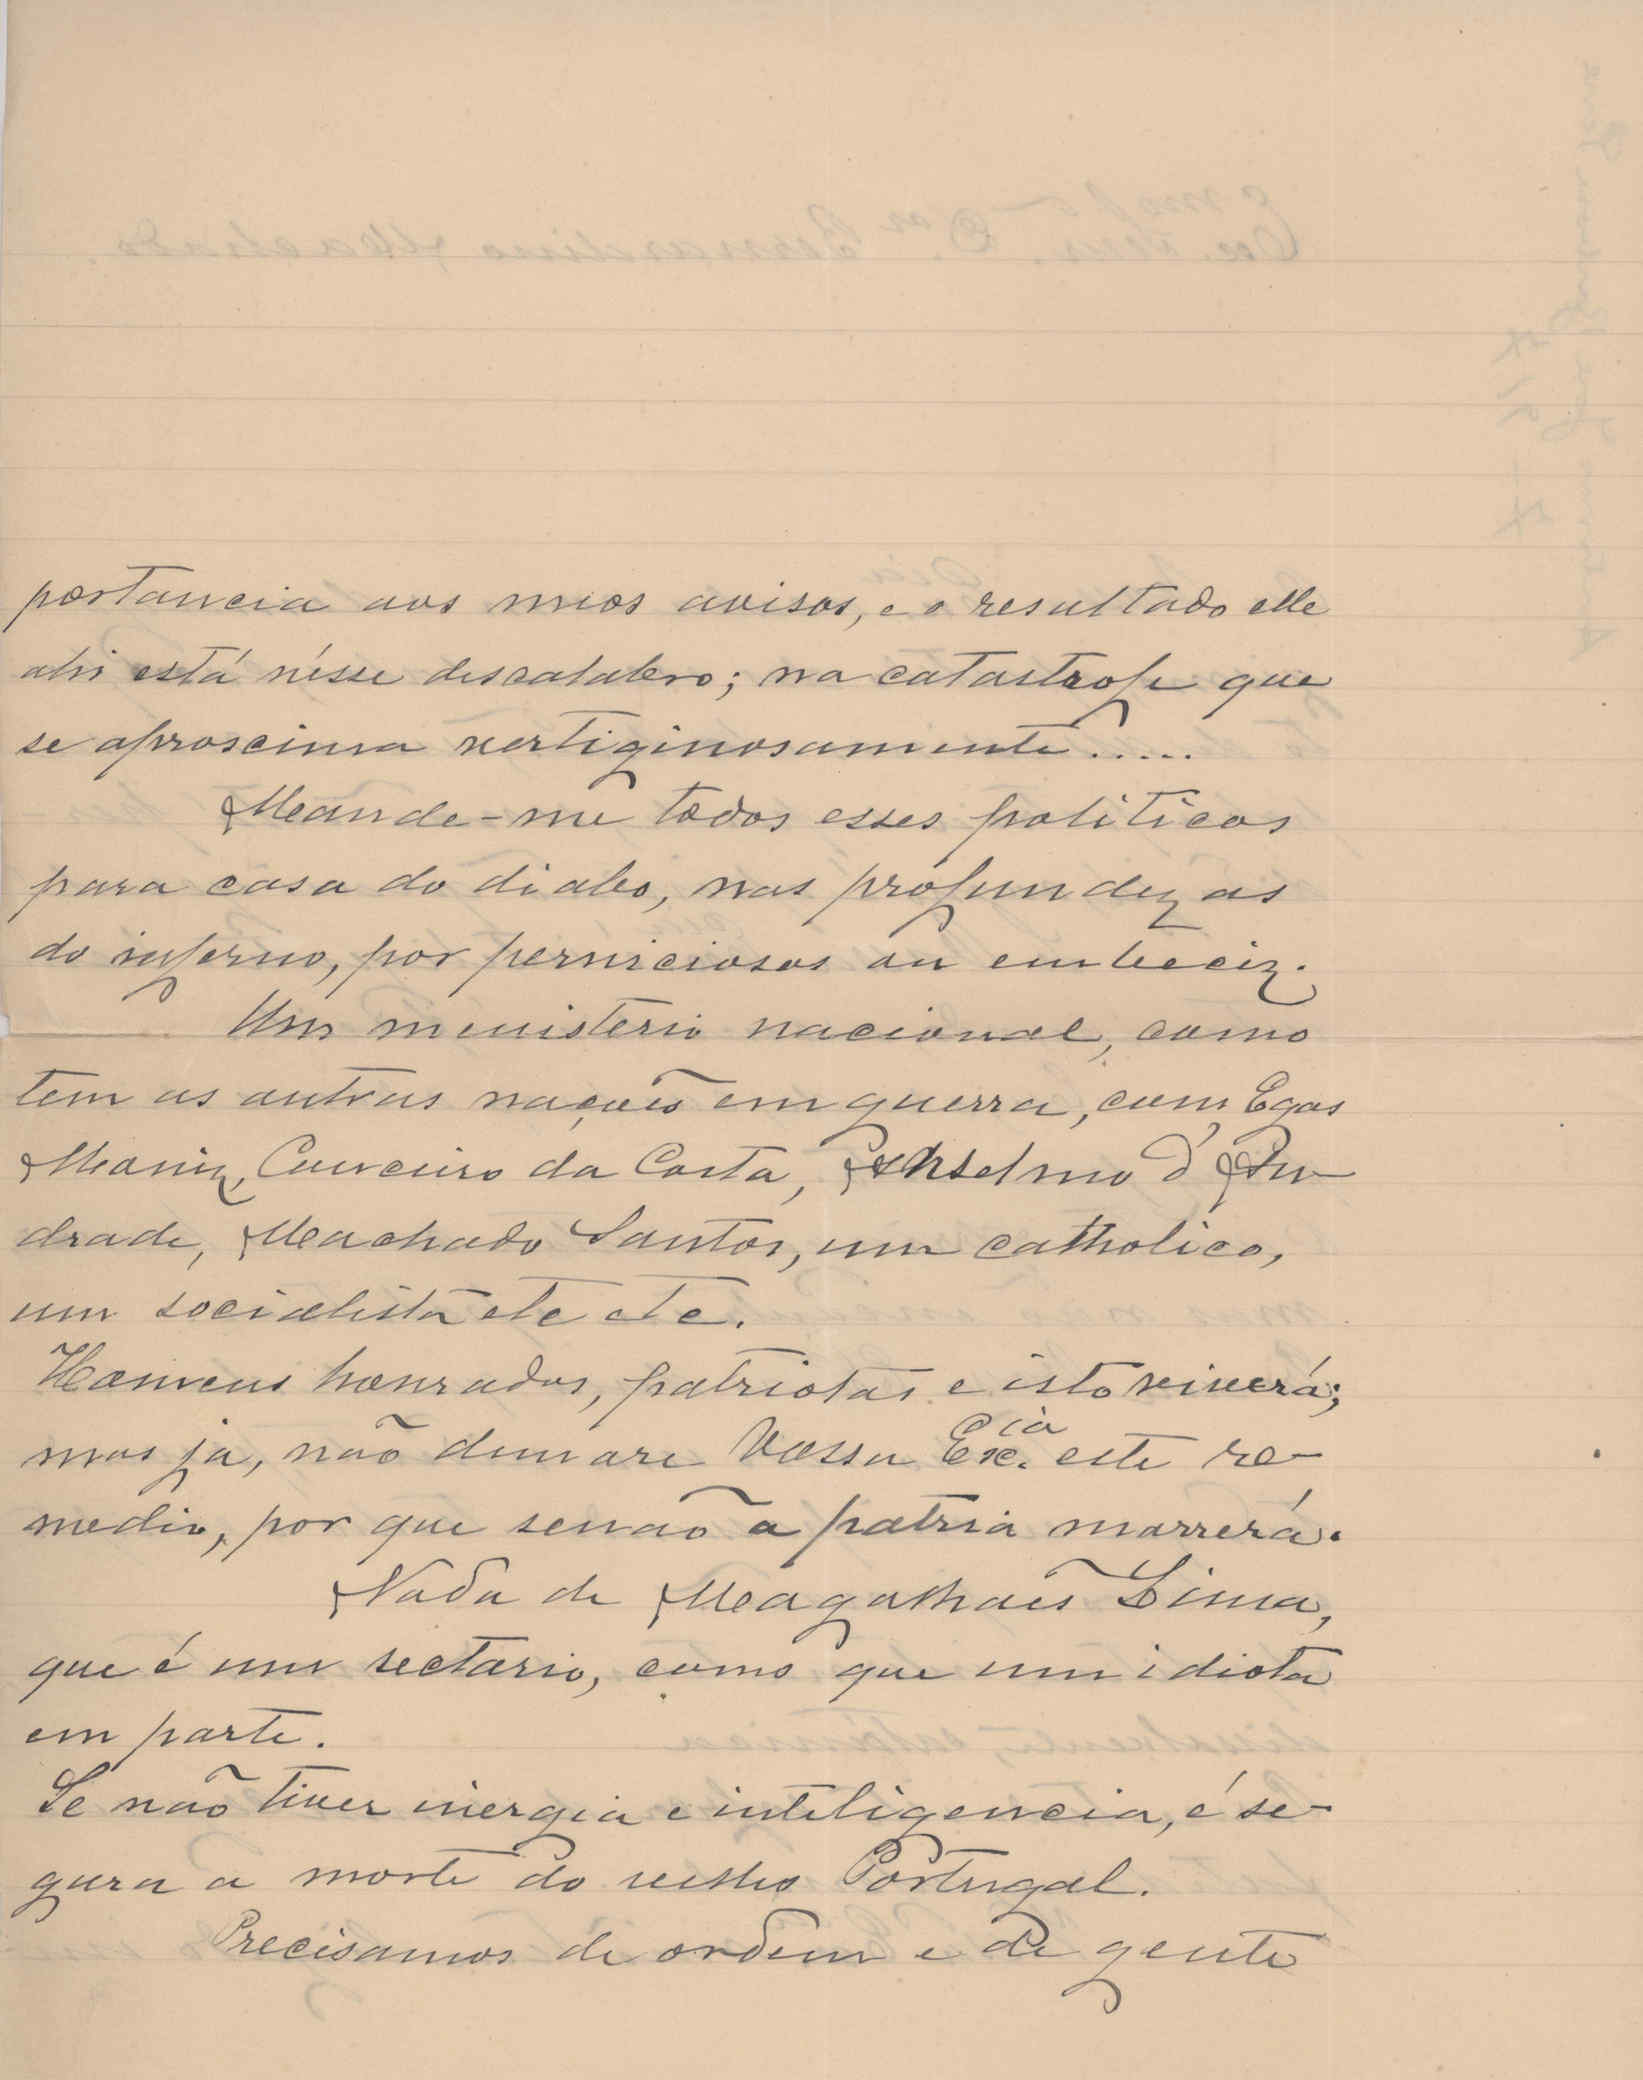 portancia aos meos avisos, e o resultado elle
ahi está nésse descalabro; na catastrofe que
se aproscima vertiginosamente.....
Mande-me todos esses politicos
para casa do diabo, nas profundezas
do inferno, por perniciosos ou embeciz.
Um menisterio nacional, como
tem as outras nações em guerra, com Egas
Moniz, Couceiro da Costa, Anselmo d'An-
drade, Machado Santos, um catholico,
um socialista etc etc.
Homens honrados, patriotas e isto viverá;
mas já, não demore Vossa Exc.cia este re-
medio, por que senão a patria morrerá.
Nada de Magalhães Lima,
que é um sectario, como que um idiota
em parte.
Se não tiver inergia e inteligencia, é se-
gura a morte do velho Portugal.
Precisamos de ordem e de gente